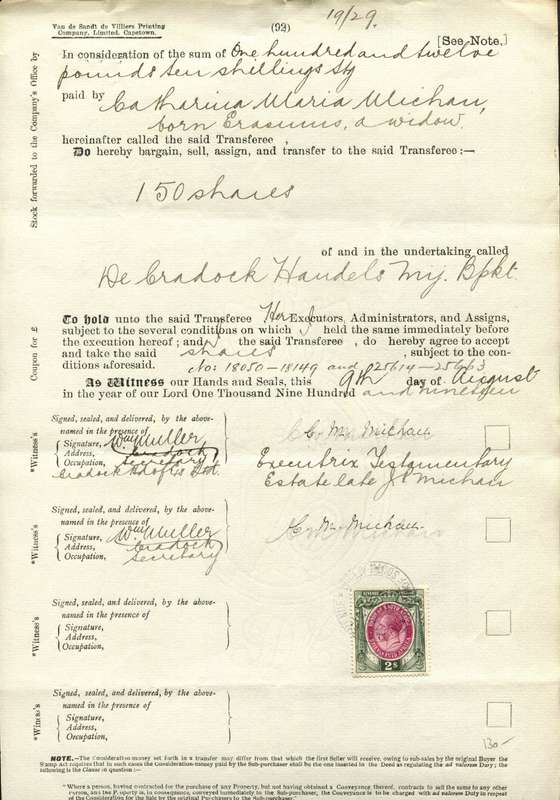 Van de Sandt de Villiers Printing
Company, Limited, Capetown.
(92)
19/29.
[See Note.]
In consideration of the sum of One hundred and twelve
pounds ten shillings stg
paid by Catharina Maria Michau,
born Erasmus, a widow
hereinafter called the said Transferee ,
Do hereby bargain, sell, assign, and transfer to the said Transferee :—
150 shares
of and in the undertaking called
De Cradock Handels My. Bpkt.
To hold unto the said Transferee Her Executors, Administrators, and Assigns,
subject to the several conditions on which I held the same immediately before
the execution hereof ; and I the said Transferee , do hereby agree to accept
and take the said shares , subject to the con-
ditions aforesaid. No: 18050 - 18149 and 25614 - 25663
As Witness our Hands and Seals, this 9th day of August
in the year of our Lord One Thousand Nine Hundred and nineteen
Signed, sealed, and delivered, by the above-
named in the presence of
Signature, Wm Muller
Address, Cradock
Occupation, Secretary
Cradock
C. M. Michau
Executrix Testamentary
Estate late Michau
Signed, sealed, and delivered, by the above-
named in the presence of
Signature, Wm Muller
Address, Cradock
Occupation, Secretary
C. M. Michau
Signed, sealed, and delivered, by the above-
named in the presence of
Signature,
Address,
Occupation,
2s
Signed, sealed, and delivered, by the above-
named in the presence of
Signature,
Address,
Occupation,
130-
*Witness's
*Witness's
*Witness's
*Witness's
Coupon for £
Stock forwarded to the Company's Office by
NOTE.—The Consideration-money set forth in a transfer may differ from that which the first Seller will receive, owing to sub-sales by the original Buyer the
Stamp Act requires that in such cases the Consideration-money paid by the Sub-purchaser shall be the one inserted in the Deed as regulating the ad valorem Duty ; the
following is the Clause in question :—
"Where a person, having contracted for the purchase of any Property, but not having obtained a Conveyance thereof, contracts to sell the same to any other
person, and the Property is, in consequence, conveyed immediately to the Sub-purchaser, the Conveyance is to be charged with ad valorem Duty in respect
of the Consideration for the Sale by the original Purchaser to the Sub-purchaser."